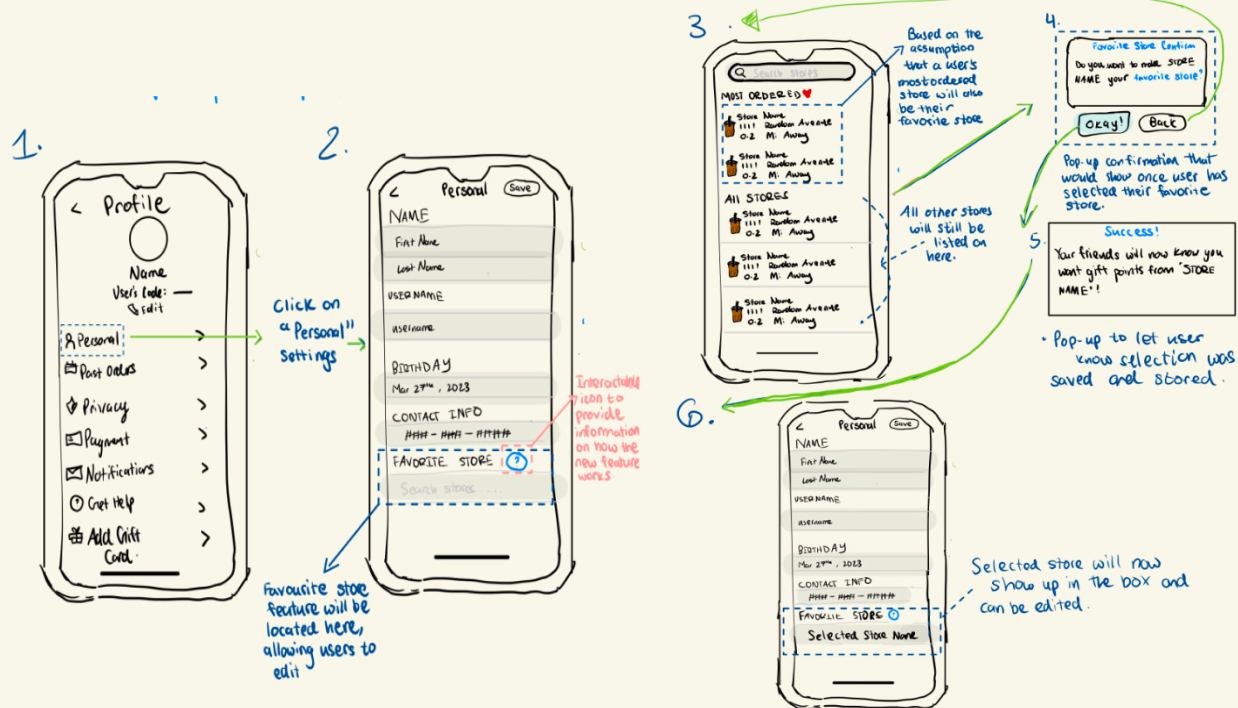 1.
< Profile
Name
User's Code: —
Edit
Personal >
Past Orders >
Privacy >
Payment >
Notifications >
Get Help >
Add Gift >
Card.
Click on
a "Personal"
settings
2.
< Personal Save
NAME
First Name
Last Name
USERNAME
username
BIRTHDAY
Mar 27th, 2023
CONTACT INFO
### - ### - ####
FAVORITE STORE ?
Search stores ....
Interactable
icon to
provide
information
on how the
new feature
works
Favourite store
feature will be
located here,
allowing users to
edit
3.
Search stores
MOST ORDERED ❤
Store Name
1111 Random Avenue
0.2 Mi Away
Store Name
1111 Random Avenue
0.2 Mi Away
All STORES
Store Name
1111 Random Avenue
0.2 Mi Away
Store Name
1111 Random Avenue
0.2 Mi Away
Store Name
1111 Random Avenue
0.2 Mi Away
Based on the
assumption
that a user's
most ordered
store will also
be their
favorite store
All other stores
will still be
listed on
here.
4.
Favorite Store Confirm
Do you want to make STORE
NAME your favorite store?
Okay! Back
Pop-up confirmation that
would show once user has
selected their favorite
store.
5.
Success!
Your friends will now know you
want gift points from "STORE
NAME"!
• Pop-up to let user
know selection was
saved and stored.
6.
< Personal Save
NAME
First Name
Last Name
USERNAME
username
BIRTHDAY
Mar 27th, 2023
CONTACT INFO
### - ### - ####
FAVORITE STORE ?
Selected Store Name
Selected store will now
show up in the box and
can be edited.